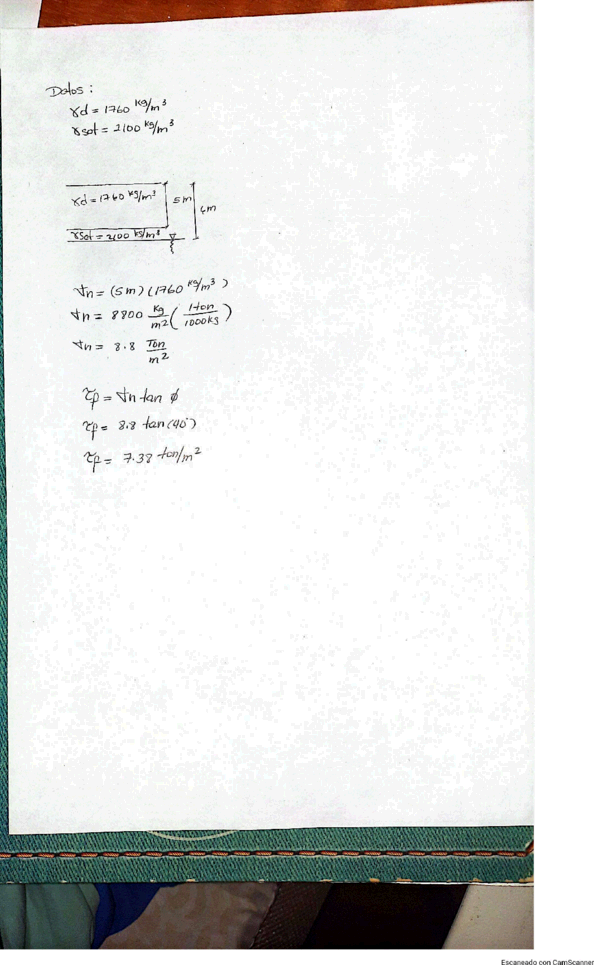 Datos :
γd = 1760 kg/m³
γsat = 2100 kg/m³
γd = 1760 kg/m³
5m
6m
γSat = 2100 kg/m³
σn = (5m) (1760 kg/m³)
σn = 8800 kg/m² (1 ton/1000kg)
σn = 8.8 Ton/m²
τp = σn tan ϕ
τp = 8.8 tan (40°)
τp = 7.38 ton/m²
Escaneado con CamScanner